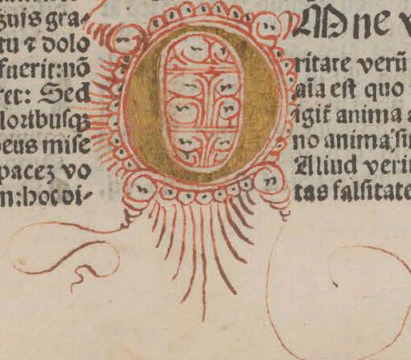 guis gra-
tu ⁊ dolo
fuerit:nō
ret: Sed
loribusqȝ
eus mise
pacez vo
n:hoc di-
O
Mne v
ritate verū
aīa est quo
igit̄ anima a
no anima'si
Aliud veri
tas falsitate